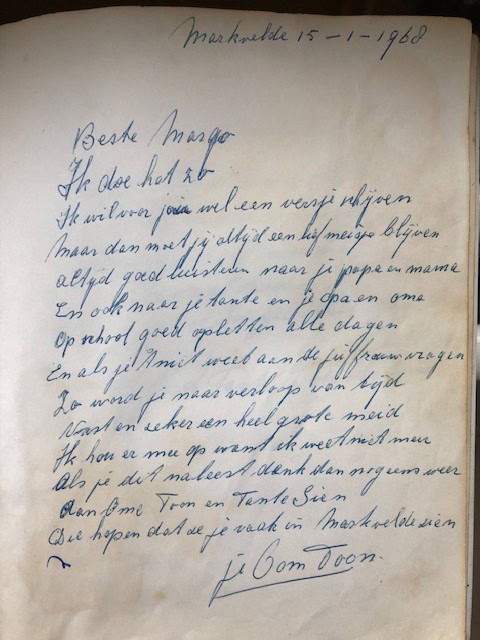 Markvelde 15-1-1968
Beste Margo
Ik doe hat zo
Ik wil voor jou wel een versje schijven
Maar dan moet jij altijd een lief meisje blijven
altijd goed luisteren naar je papa en mama
En ook naar je tante en je opa en oma
Op school goed opletten alle dagen
En als je 't niet weet aan de juffrouw vragen
Zo word je naar verloop van tijd
Vast en zeker een heel grote meid
Ik hou er mee op want ik weet niet meer
Als je dit naleest denk dan nog eens weer
Aan Ome Toon en Tante Sien
Die hopen dat ze je vaak in Markvelde zien
je Oom Toon.